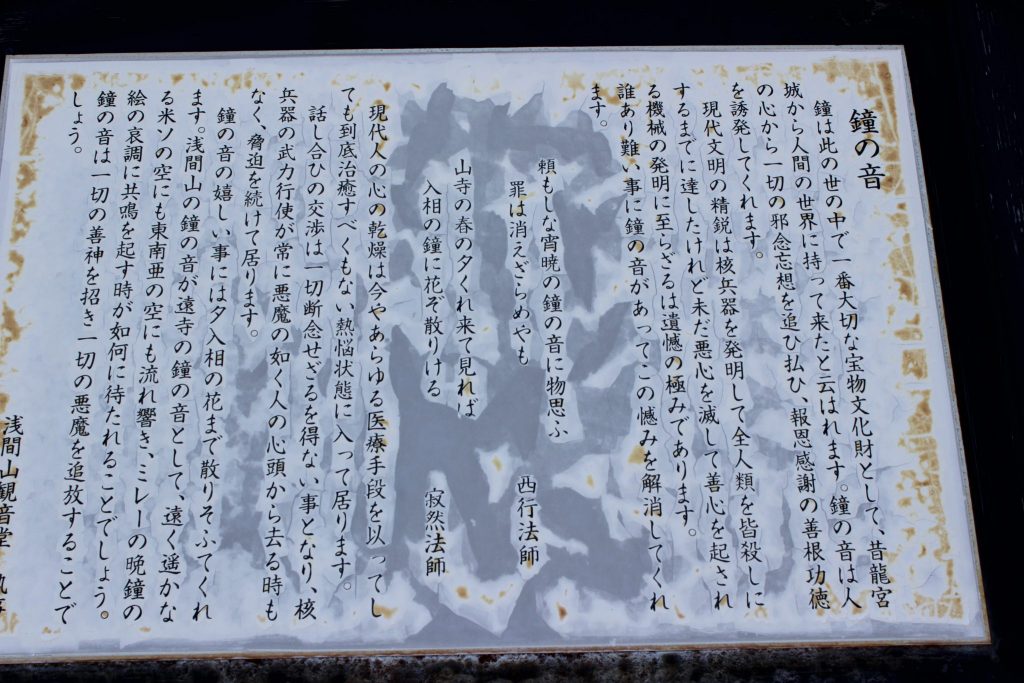 鐘の音
鐘は此の世の中で一番大切な宝物文化財として、昔龍宮
城から人間の世界に持って来たと云はれます。鐘の音は人
の心から一切の邪念忘想を追ひ払ひ、報恩感謝の善根功徳
を誘発してくれます。
現代文明の精鋭は核兵器を発明して全人類を皆殺しに
するまでに達したけれど未だ悪心を滅して善心を起され
る機械の発明に至らざるは遺憾の極みであります。
誰あり難い事に鐘の音があってこの憾みを解消してくれ
ます。
頼もしな宵暁の鐘の音に物思ふ
罪は消えざらめやも
西行法師
山寺の春の夕くれ来て見れば
入相の鐘に花ぞ散りける
寂然法師
現代人の心の乾燥は今やあらゆる医療手段を以ってし
ても到底治癒すべくもない熱悩状態に入って居ります。
話し合ひの交渉は一切断念せざるを得ない事となり、核
兵器の武力行使が常に悪魔の如く人の心頭から去る時も
なく、脅迫を続けて居ります。
鐘の音の嬉しい事には夕入相の花まで散りそふてくれ
ます。浅間山の鐘の音が遠寺の鐘の音として、遠く遥かな
る米ソの空にも東南亜の空にも流れ響き、ミレーの晩鐘の
絵の哀調に共鳴を起す時が如何に待たれることでしょう。
鐘の音は一切の善神を招き一切の悪魔を追放することで
しょう。
浅間山観音堂